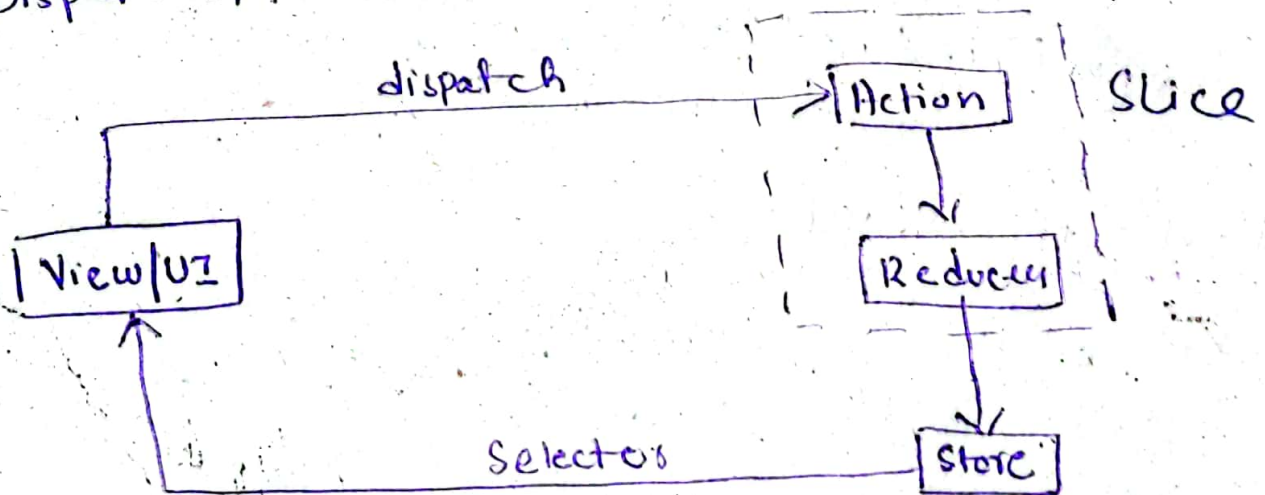 dispatch
Action
Slice
View/UI
Reducer
Selector
Store